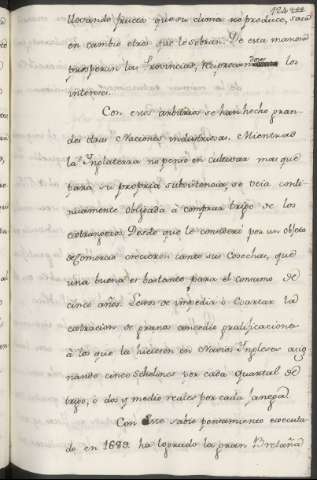 llevando frutos que su clima no produce, sacan
en cambio otros que le sobran. De esta manera
prosperan las Provincias, reciprocandose los
intereses.
Con esos arbitrios se han hecho gran-
des dos Naciones industriosas. Mientras
la Inglaterra no penso en cultivar mas que
para su propria subsistencia, se veia conti-
nuamente obligada à comprar trigo de los
extrangeros. Desde que le consideró por un objeto
de Comercio crecieron tanto sus Cosechas, que
una buena es bastante para el consumo de
cinco años. Lexos de impedir ó Coartar la
extraccion de granos concedio gratificaciones
à lo que la hicieren en Navios Ingleses
cinco Schelines por cada quartal de
trigo, ò dos y medio reales por cada fanega.
Con este sabio pensamiento executa-
do en 1689 ha logrado la gran Bretaña